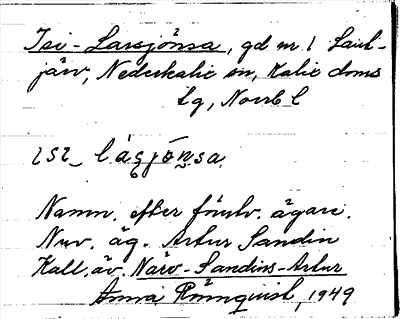 Isi-Larsjönsa, gd nr 1 Saul-
järv, Nederkalix sn, Kalix doms
lg, Norrb l
ɩsɩ_lásjónsa
Namn. efter förutv. ägare.
Nuv. äg. Artur Sandin
Kall. äv. Närv-Sandins-Artur
Anna Rönnquist, 1949